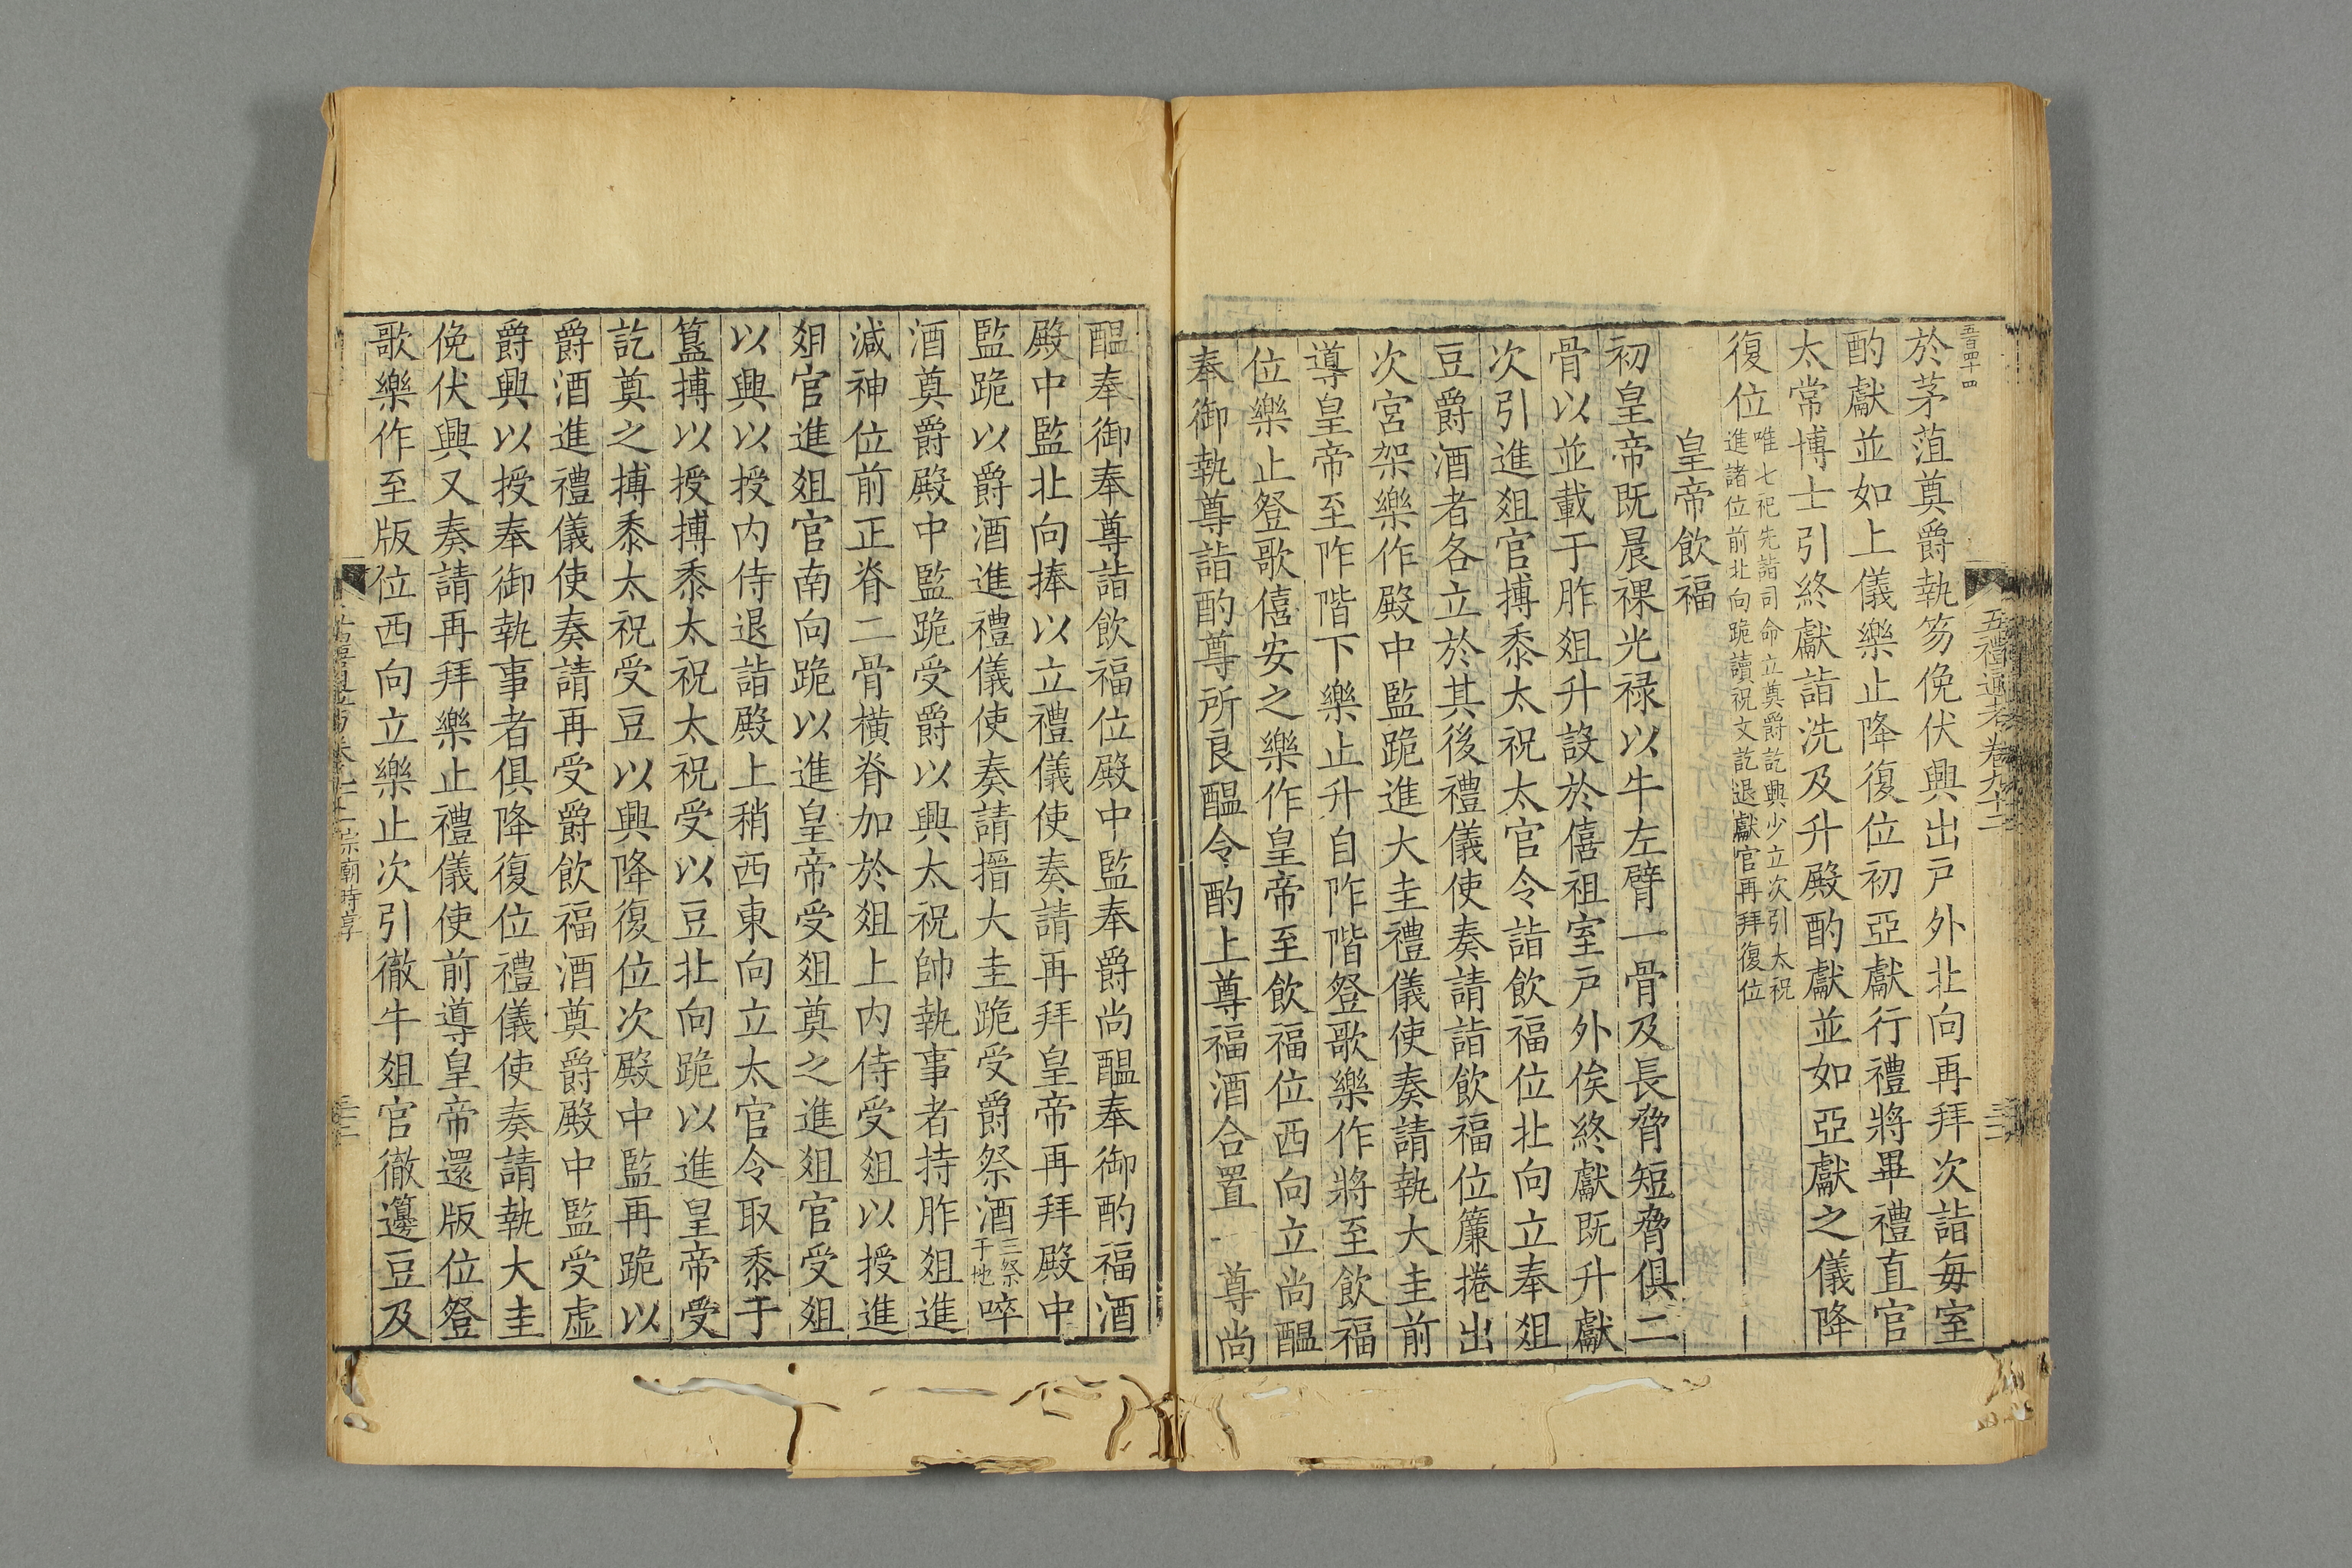 五百四十四
五禮通考卷九十二
於茅葅奠爵執笏俛伏興出戸外北向再拜次詣每室
酌獻並如上儀樂止降復位初亞獻行禮將畢禮直官
太常博士引終獻詣洗及升殿酌獻並如亞獻之儀降
復位唯七祀先詣司命立奠爵訖興少立次引太祝
進諸位前北向跪讀祝文訖退獻官再拜復位
皇帝飲福
初皇帝既晨祼光禄以牛左臂一骨及長脅短脅俱二
骨以並載于胙爼升設於僖祖室戸外俟終獻既升獻
次引進爼官摶黍太祝太官令詣飲福位北向立奉爼
豆爵酒者各立於其後禮儀使奏請詣飲福位簾捲出
次宮架樂作殿中監跪進大圭禮儀使奏請執大圭前
導皇帝至阼階下樂止升自阼階登歌樂作將至飲福
位樂止登歌僖安之樂作皇帝至飲福位西向立尚醖
奉御執尊詣酌尊所良醖令酌上尊福酒合置一尊尚
醖奉御奉尊詣飲福位殿中監奉爵尚醖奉御酌福酒
殿中監北向捧以立禮儀使奏請再拜皇帝再拜殿中
監跪以爵酒進禮儀使奏請搢大圭跪受爵祭酒三祭于地啐
酒奠爵殿中監跪受爵以興太祝帥執事者持胙爼進
減神位前正脊二骨橫脊加於爼上内侍受爼以授進
爼官進爼官南向跪以進皇帝受爼奠之進爼官受爼
以興以授内侍退詣殿上稍西東向立太官令取黍于
簋摶以授摶黍太祝太祝受以豆北向跪以進皇帝受
訖奠之摶黍太祝受豆以興降復位次殿中監再跪以
爵酒進禮儀使奏請再受爵飲福酒奠爵殿中監受虛
爵興以授奉御執事者俱降復位禮儀使奏請執大圭
俛伏興又奏請再拜樂止禮儀使前導皇帝還版位登
歌樂作至版位西向立樂止次引徹牛爼官徹籩豆及
宗廟時享